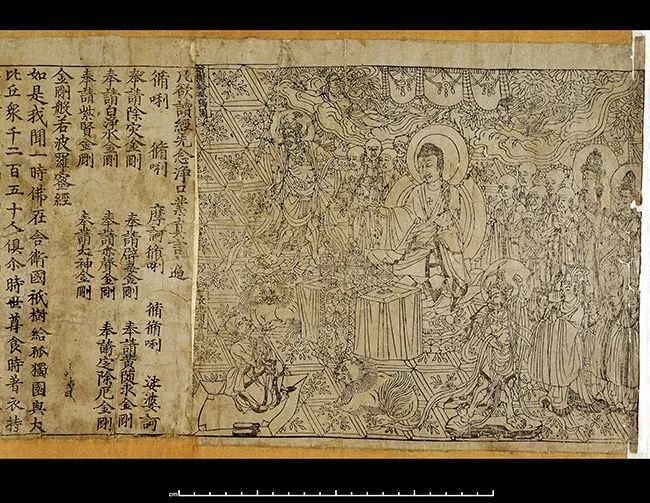 凡欲讀經先念淨口業真言一遍
脩唎 脩唎 摩訶脩唎 脩脩唎 娑婆訶
奉請除灾金剛 奉請辟毒金剛 奉請黃隨求金剛
奉請白淨水金剛 奉請赤聲金剛 奉請定除厄金剛
奉請紫賢金剛 奉請大神金剛
金剛般若波羅蜜經
如是我聞一時佛在舍衛國祇樹給孤獨園與大
比丘衆千二百五十人俱尒時世尊食時著衣持
cm